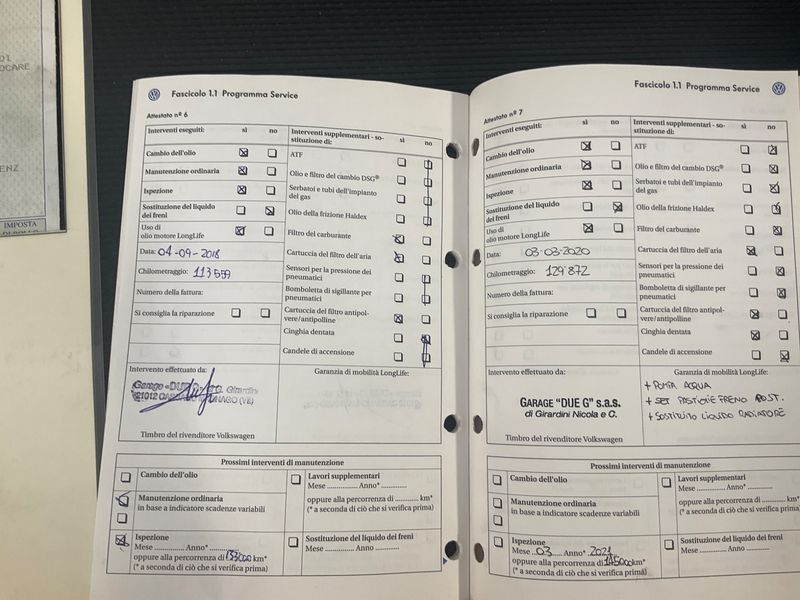 OCARE
ENZ
IMPOSTA
Fascicolo 1.1 Programma Service
Attestato nº 6
Interventi eseguiti: sì no
Cambio dell'olio
Manutenzione ordinaria
Ispezione
Sostituzione del liquido
dei freni
Uso di
olio motore LongLife
Data: 04-09-2018
Chilometraggio: 113559
Numero della fattura:
Si consiglia la riparazione
Interventi supplementari - so-
stituzione di: sì no
ATF
Olio e filtro del cambio DSG®
Serbatoi e tubi dell'impianto
del gas
Olio della frizione Haldex
Filtro del carburante
Cartuccia del filtro dell'aria
Sensori per la pressione dei
pneumatici
Bomboletta di sigillante per
pneumatici
Cartuccia del filtro antipol-
vere/antipolline
Cinghia dentata
Candele di accensione
Intervento effettuato da:
Garage «DUE
21012
Timbro del rivenditore Volkswagen
Garanzia di mobilità LongLife:
Prossimi interventi di manutenzione
Cambio dell'olio
Manutenzione ordinaria
in base a indicatore scadenze variabili
Ispezione
Mese ............ Anno* ............
oppure alla percorrenza di 133000 km*
(* a seconda di ciò che si verifica prima)
Lavori supplementari
Mese ............ Anno* ............
oppure alla percorrenza di ............ km*
(* a seconda di ciò che si verifica prima)
Sostituzione del liquido dei freni
Mese ............ Anno ............
Fascicolo 1.1 Programma Service
Attestato nº 7
Interventi eseguiti: sì no
Cambio dell'olio
Manutenzione ordinaria
Ispezione
Sostituzione del liquido
dei freni
Uso di
olio motore LongLife
Data: 03-03-2020
Chilometraggio: 129'872
Numero della fattura:
Si consiglia la riparazione
Interventi supplementari - so-
stituzione di: sì no
ATF
Olio e filtro del cambio DSG®
Serbatoi e tubi dell'impianto
del gas
Olio della frizione Haldex
Filtro del carburante
Cartuccia del filtro dell'aria
Sensori per la pressione dei
pneumatici
Bomboletta di sigillante per
pneumatici
Cartuccia del filtro antipol-
vere/antipolline
Cinghia dentata
Candele di accensione
Intervento effettuato da:
GARAGE "DUE G" s.a.s.
di Girardini Nicola e C.
Timbro del rivenditore Volkswagen
Garanzia di mobilità LongLife:
+ POMPA ACQUA
+ SET PASTIGLIE FRENO POST.
+ SOSTITUITO LIQUIDO RADIATORE
Prossimi interventi di manutenzione
Cambio dell'olio
Manutenzione ordinaria
in base a indicatore scadenze variabili
Ispezione
Mese 03 Anno* 2021
oppure alla percorrenza di 145000 km*
(* a seconda di ciò che si verifica prima)
Lavori supplementari
Mese ............ Anno* ............
oppure alla percorrenza di ............ km
(* a seconda di ciò che si verifica prima)
Sostituzione del liquido dei freni
Mese ............ Anno ............